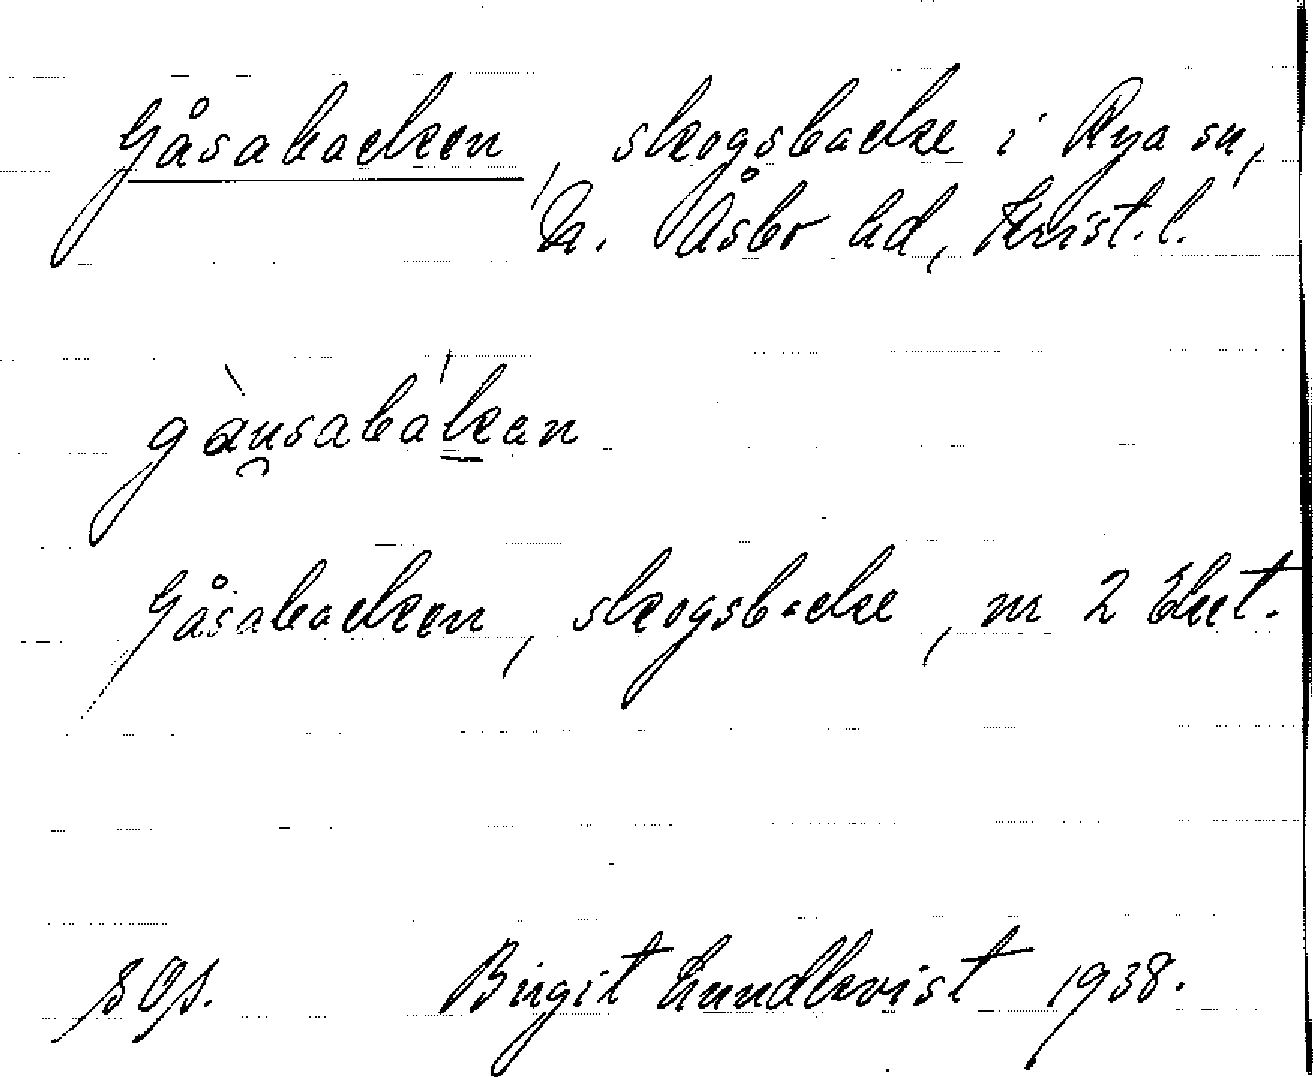 Gåsabacken, skogsbacke i Rya sn,
N. Åsbo hd, Krist. l.
gàu̯sabák̲an
Gåsabacken, skogsbacke, m 2 Eket.
Birgit Lundkvist 1938.